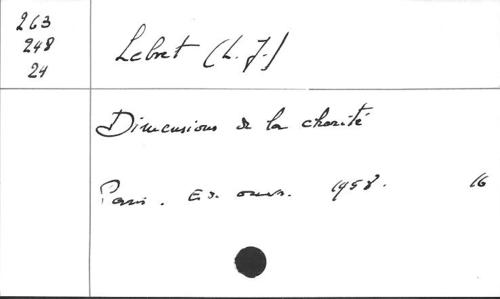 263
248
24
Lebret (L. J.)
Dimensions de la charité
Paris. Ed. ouvr. 1958. 16